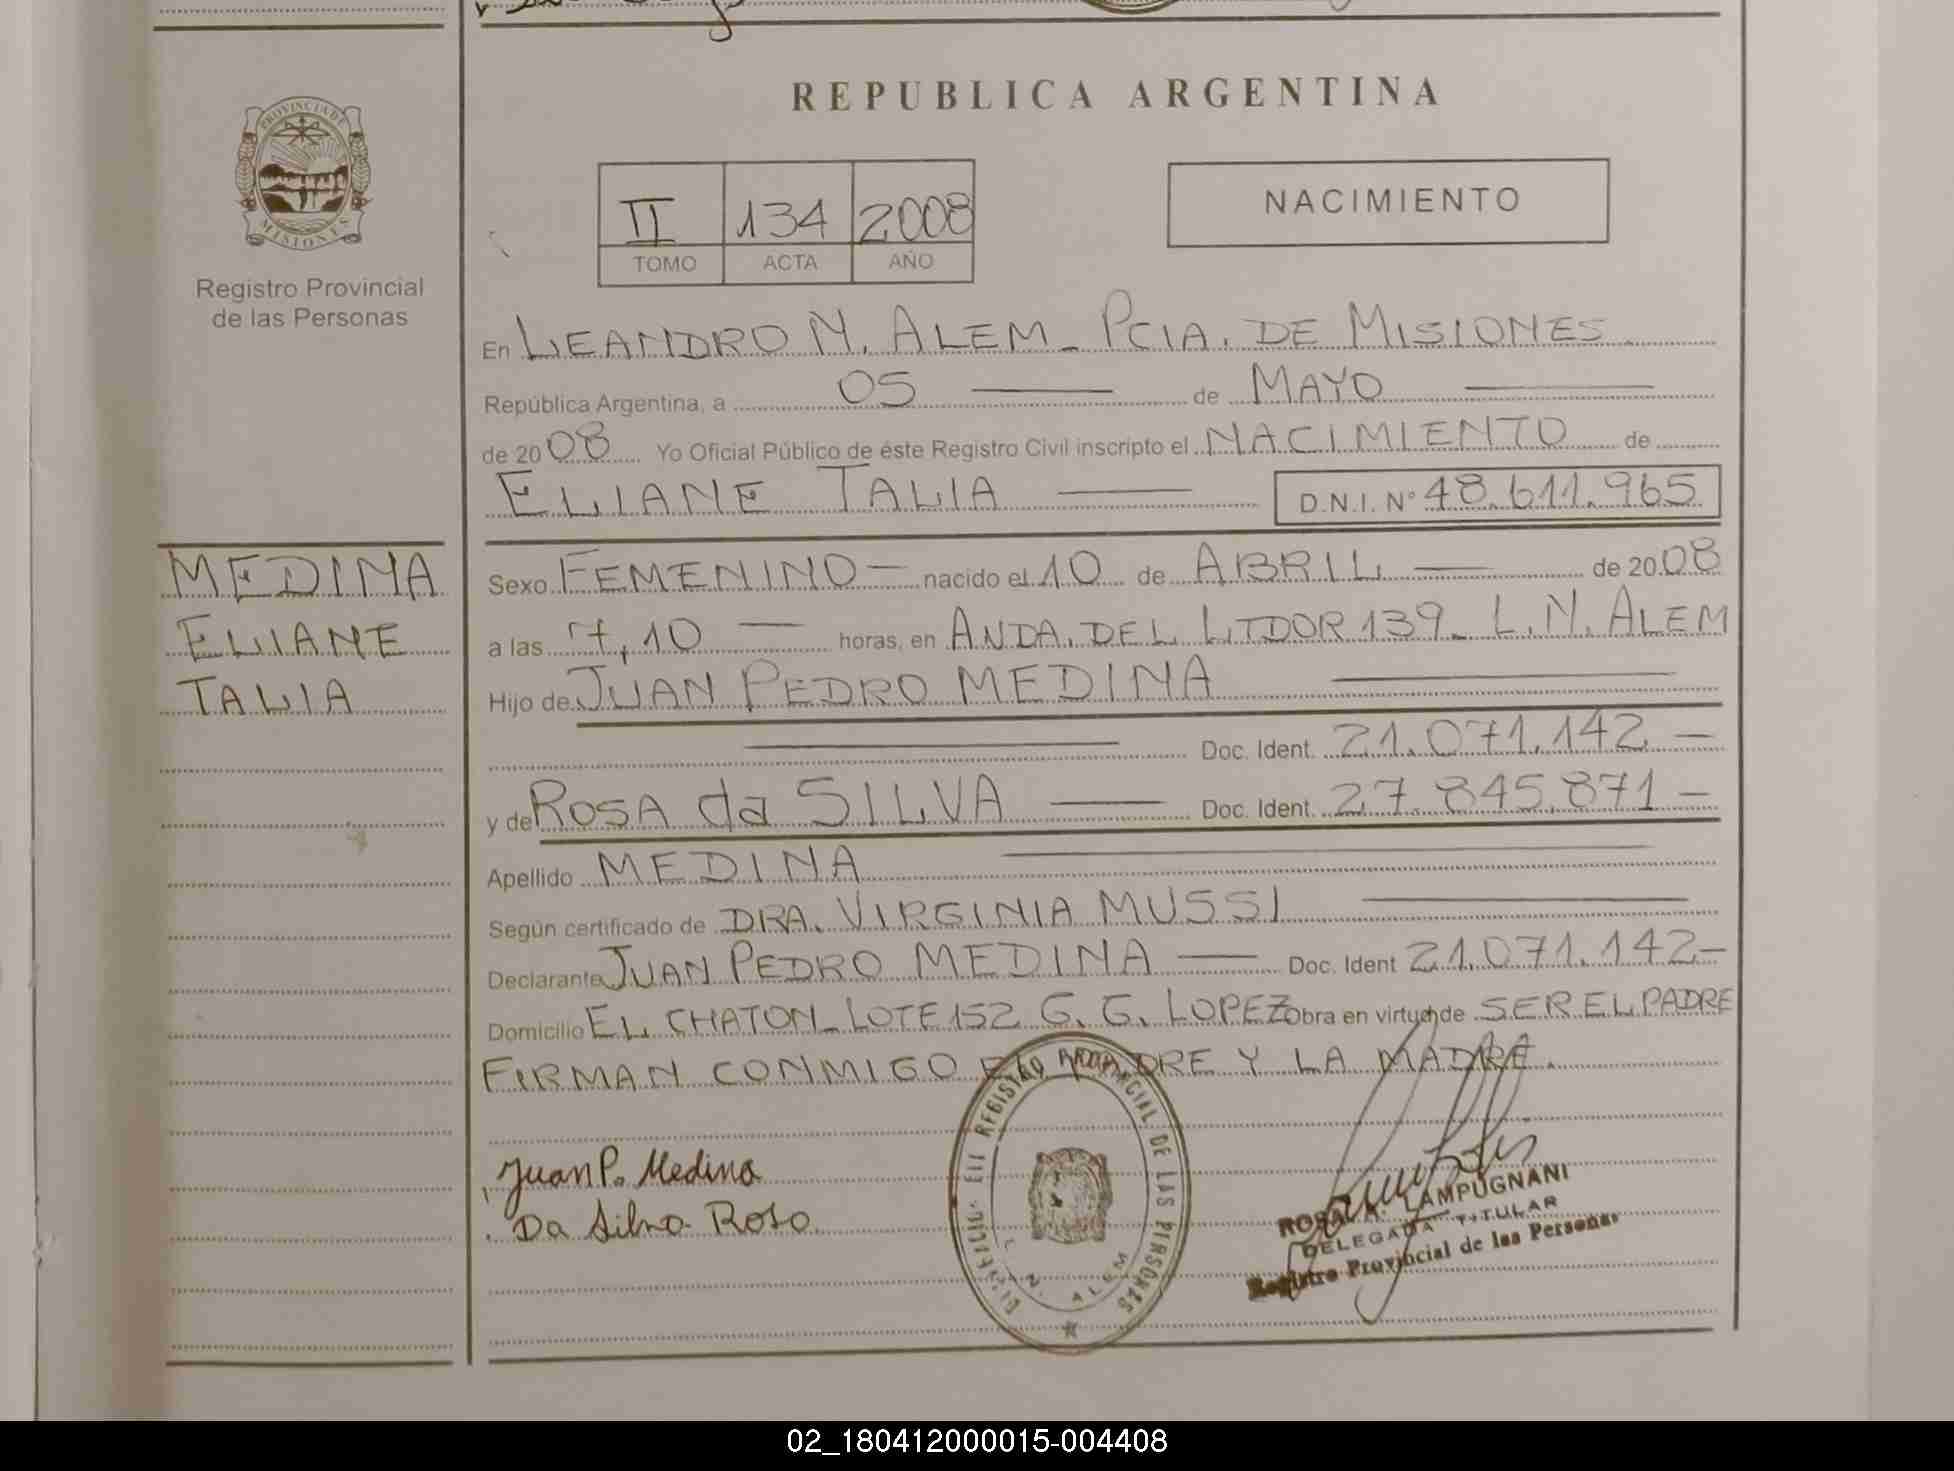 PROVINCIA DE
MISIONES
Registro Provincial
de las Personas
REPUBLICA ARGENTINA
II 134 2008
TOMO ACTA AÑO
NACIMIENTO
En LEANDRO N. ALEM - PCIA. DE MISIONES
República Argentina, a 05 — de MAYO —
de 2008 Yo Oficial Público de éste Registro Civil inscripto el NACIMIENTO de
ELIANE TALIA — D.N.I. N° 48.611.965
MEDINA
ELIANE
TALIA
Sexo FEMENINO — nacido el 10 de ABRIL — de 2008
a las 7,10 — horas, en ANDA. DEL LTDOR 139 - L.N. ALEM
Hijo de JUAN PEDRO MEDINA —
— Doc. Ident. 21.071.142 —
y de ROSA da SILVA — Doc. Ident. 27.845.871 —
Apellido MEDINA —
Según certificado de DRA. VIRGINIA MUSSI —
Declarante JUAN PEDRO MEDINA — Doc. Ident 21.071.142 —
Domicilio EL CHATON - LOTE 152 G. G. LOPEZ obra en virtud de SER EL PADRE
FIRMAN CONMIGO EL PADRE Y LA MADRE.
Juan P. Medina
Da Silva Rosa
REGISTRO PROVINCIAL DE LAS PERSONAS
L. N. ALEM
LAMPUGNANI
DELEGADA TITULAR
Registro Provincial de las Personas
02_180412000015-004408